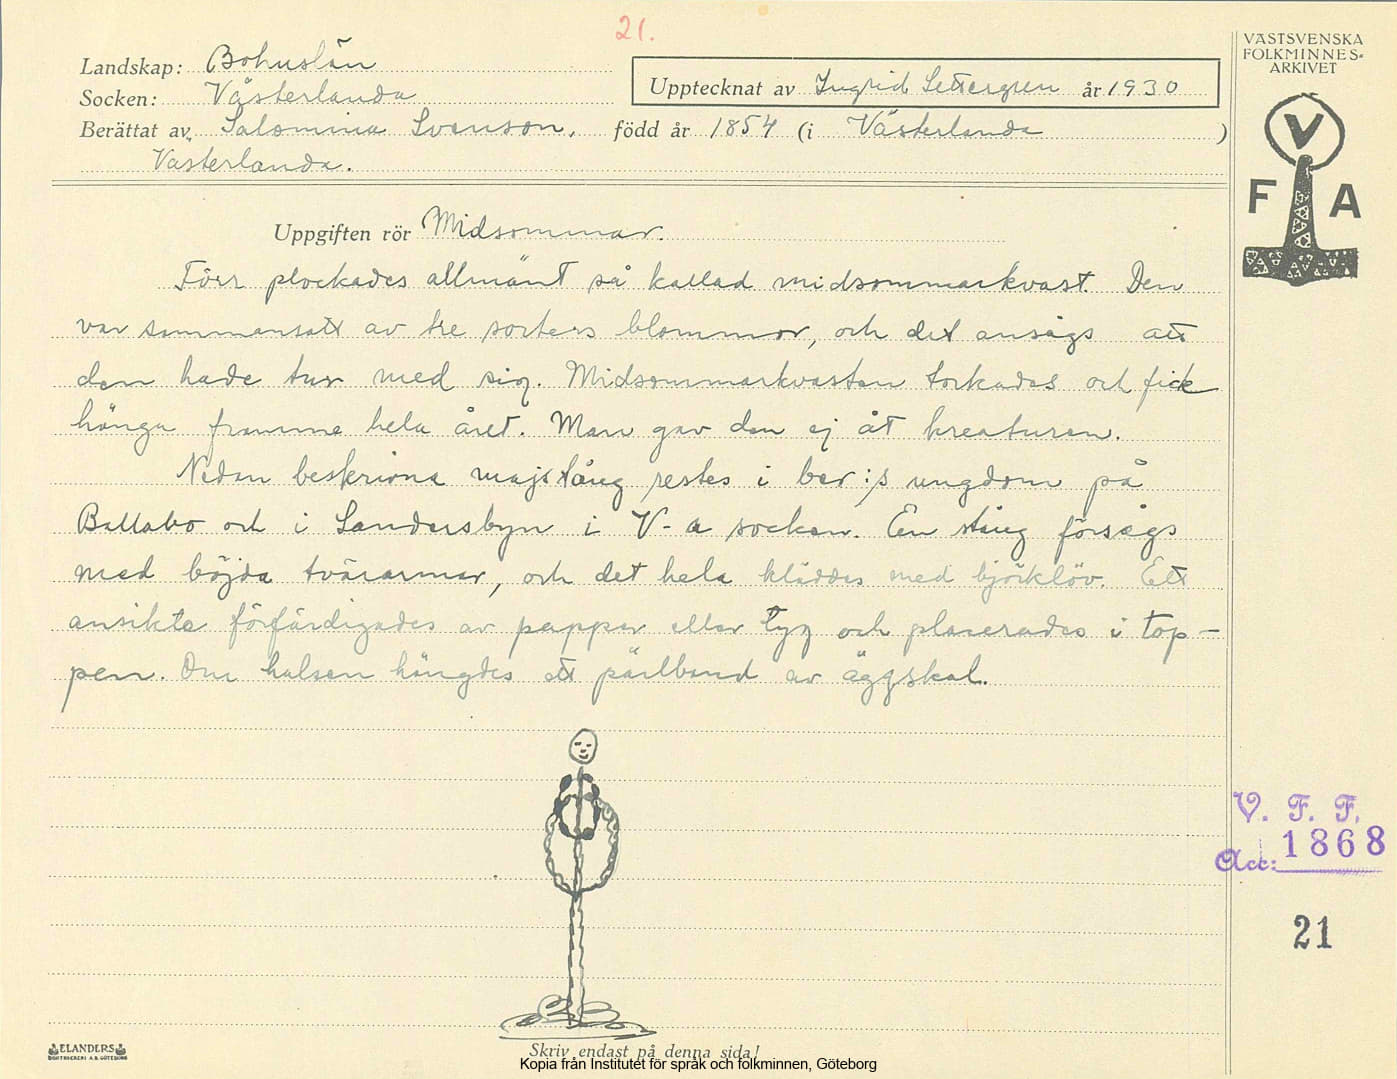 21.
Landskap: Bohuslän
Socken: Västerlanda
Upptecknat av Ingrid Settergren år 1930
Berättat av Salomina Svenson, född år 1854 (i Västerlanda )
Västerlanda.
VÄSTSVENSKA
FOLKMINNES-
ARKIVET
V
F A
Uppgiften rör Midsommar.
Förr plockades allmänt så kallad midsommarkvast. Den
var sammansatt av tre sorters blommor, och det ansågs att
den hade tur med sig. Midsommarkvasten torkades och fick
hänga framme hela året. Man gav den ej åt kreaturen.
Nedan beskrivna majstång restes i ber:s ungdom på
Ballabo och i Sandersbyn i V-a socken. En stång försågs
med böjda tvärarmar, och det hela kläddes med björklöv. Ett
ansikte förfärdigades av papper eller tyg och placerades i top-
pen. Om halsen hängdes ett pärlband av äggskal.
V. F. F.
Acc: 1868
21
ELANDERS
BOKTRYCKERI A.B. GÖTEBORG
Skriv endast på denna sida!
Kopia från Institutet för språk och folkminnen, Göteborg